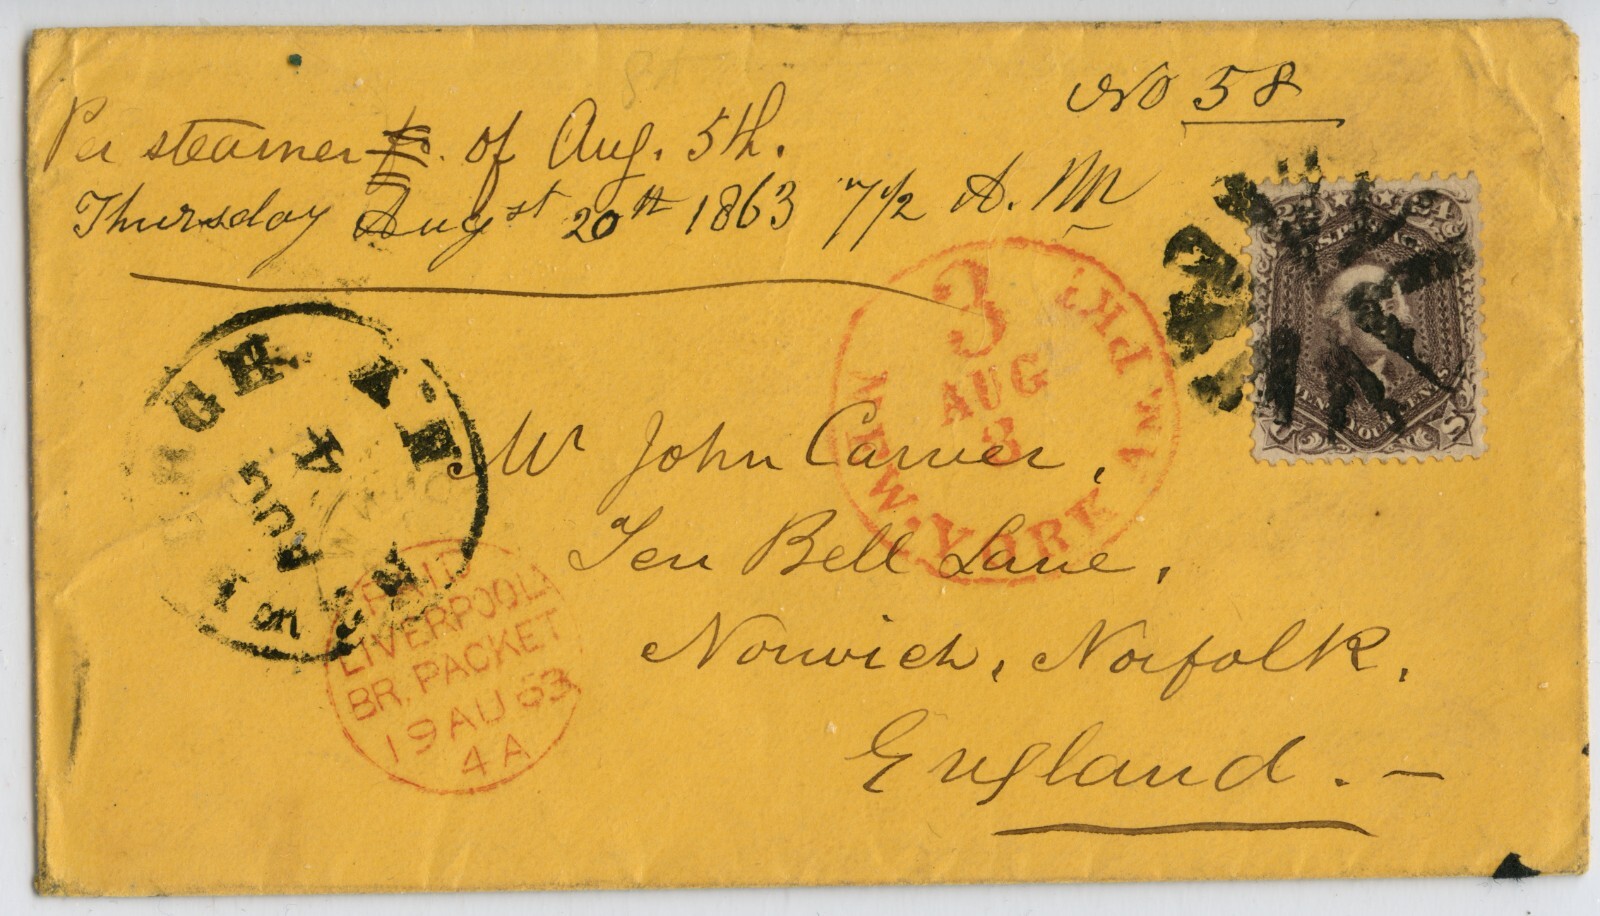 No 58
Per steamer of Aug. 5th.
Thursday August 20th 1863 7 1/2 A. M
24 24
U.S. POSTAGE
3
AUG
3
NEW YORK AM. PKT.
AUG
4
Mr John Carver,
Ten Bell Lane,
Norwich, Norfolk.
England. —
PAID
LIVERPOOL
BR. PACKET
19 AU 63
4 A